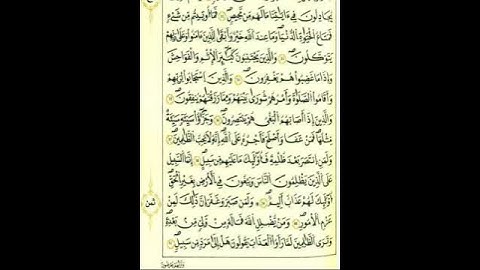 يُجَٰدِلُونَ فِىٓ ءَايَٰتِنَا مَا لَهُم مِّن مَّحِيصٖ فَمَآ أُوتِيتُم مِّن شَىۡءٖ
فَمَتَٰعُ ٱلۡحَيَوٰةِ ٱلدُّنۡيَا وَمَا عِندَ ٱللَّهِ خَيۡرٞ وَأَبۡقَىٰ لِلَّذِينَ ءَامَنُواْ وَعَلَىٰ رَبِّهِمۡ
يَتَوَكَّلُونَ وَٱلَّذِينَ يَجۡتَنِبُونَ كَبَٰٓئِرَ ٱلۡإِثۡمِ وَٱلۡفَوَٰحِشَ
وَإِذَا مَا غَضِبُواْ هُمۡ يَغۡفِرُونَ وَٱلَّذِينَ ٱسۡتَجَابُواْ لِرَبِّهِمۡ
وَأَقَامُواْ ٱلصَّلَوٰةَ وَأَمۡرُهُمۡ شُورَىٰ بَيۡنَهُمۡ وَمِمَّا رَزَقۡنَٰهُمۡ يُنفِقُونَ
وَٱلَّذِينَ إِذَآ أَصَابَهُمُ ٱلۡبَغۡىُ هُمۡ يَنتَصِرُونَ وَجَزَٰٓؤُاْ سَيِّئَةٖ سَيِّئَةٞ
مِّثۡلُهَا فَمَنۡ عَفَا وَأَصۡلَحَ فَأَجۡرُهُۥ عَلَى ٱللَّهِ إِنَّهُۥ لَا يُحِبُّ ٱلظَّٰلِمِينَ
وَلَمَنِ ٱنتَصَرَ بَعۡدَ ظُلۡمِهِۦ فَأُوْلَٰٓئِكَ مَا عَلَيۡهِم مِّن سَبِيلٍ إِنَّمَا ٱلسَّبِيلُ
عَلَى ٱلَّذِينَ يَظۡلِمُونَ ٱلنَّاسَ وَيَبۡغُونَ فِى ٱلۡأَرۡضِ بِغَيۡرِ ٱلۡحَقِّ
أُوْلَٰٓئِكَ لَهُمۡ عَذَابٌ أَلِيمٞ وَلَمَن صَبَرَ وَغَفَرَ إِنَّ ذَٰلِكَ لَمِنۡ
عَزۡمِ ٱلۡأُمُورِ وَمَن يُضۡلِلِ ٱللَّهُ فَمَا لَهُۥ مِن وَلِىّٖ مِّنۢ بَعۡدِهِۦ
وَتَرَى ٱلظَّٰلِمِينَ لَمَّا رَأَوُاْ ٱلۡعَذَابَ يَقُولُونَ هَلۡ إِلَىٰ مَرَدّٖ مِّن سَبِيلٖ
ثمن
وَتَرَىٰهُمۡ يُعۡرَضُونَ